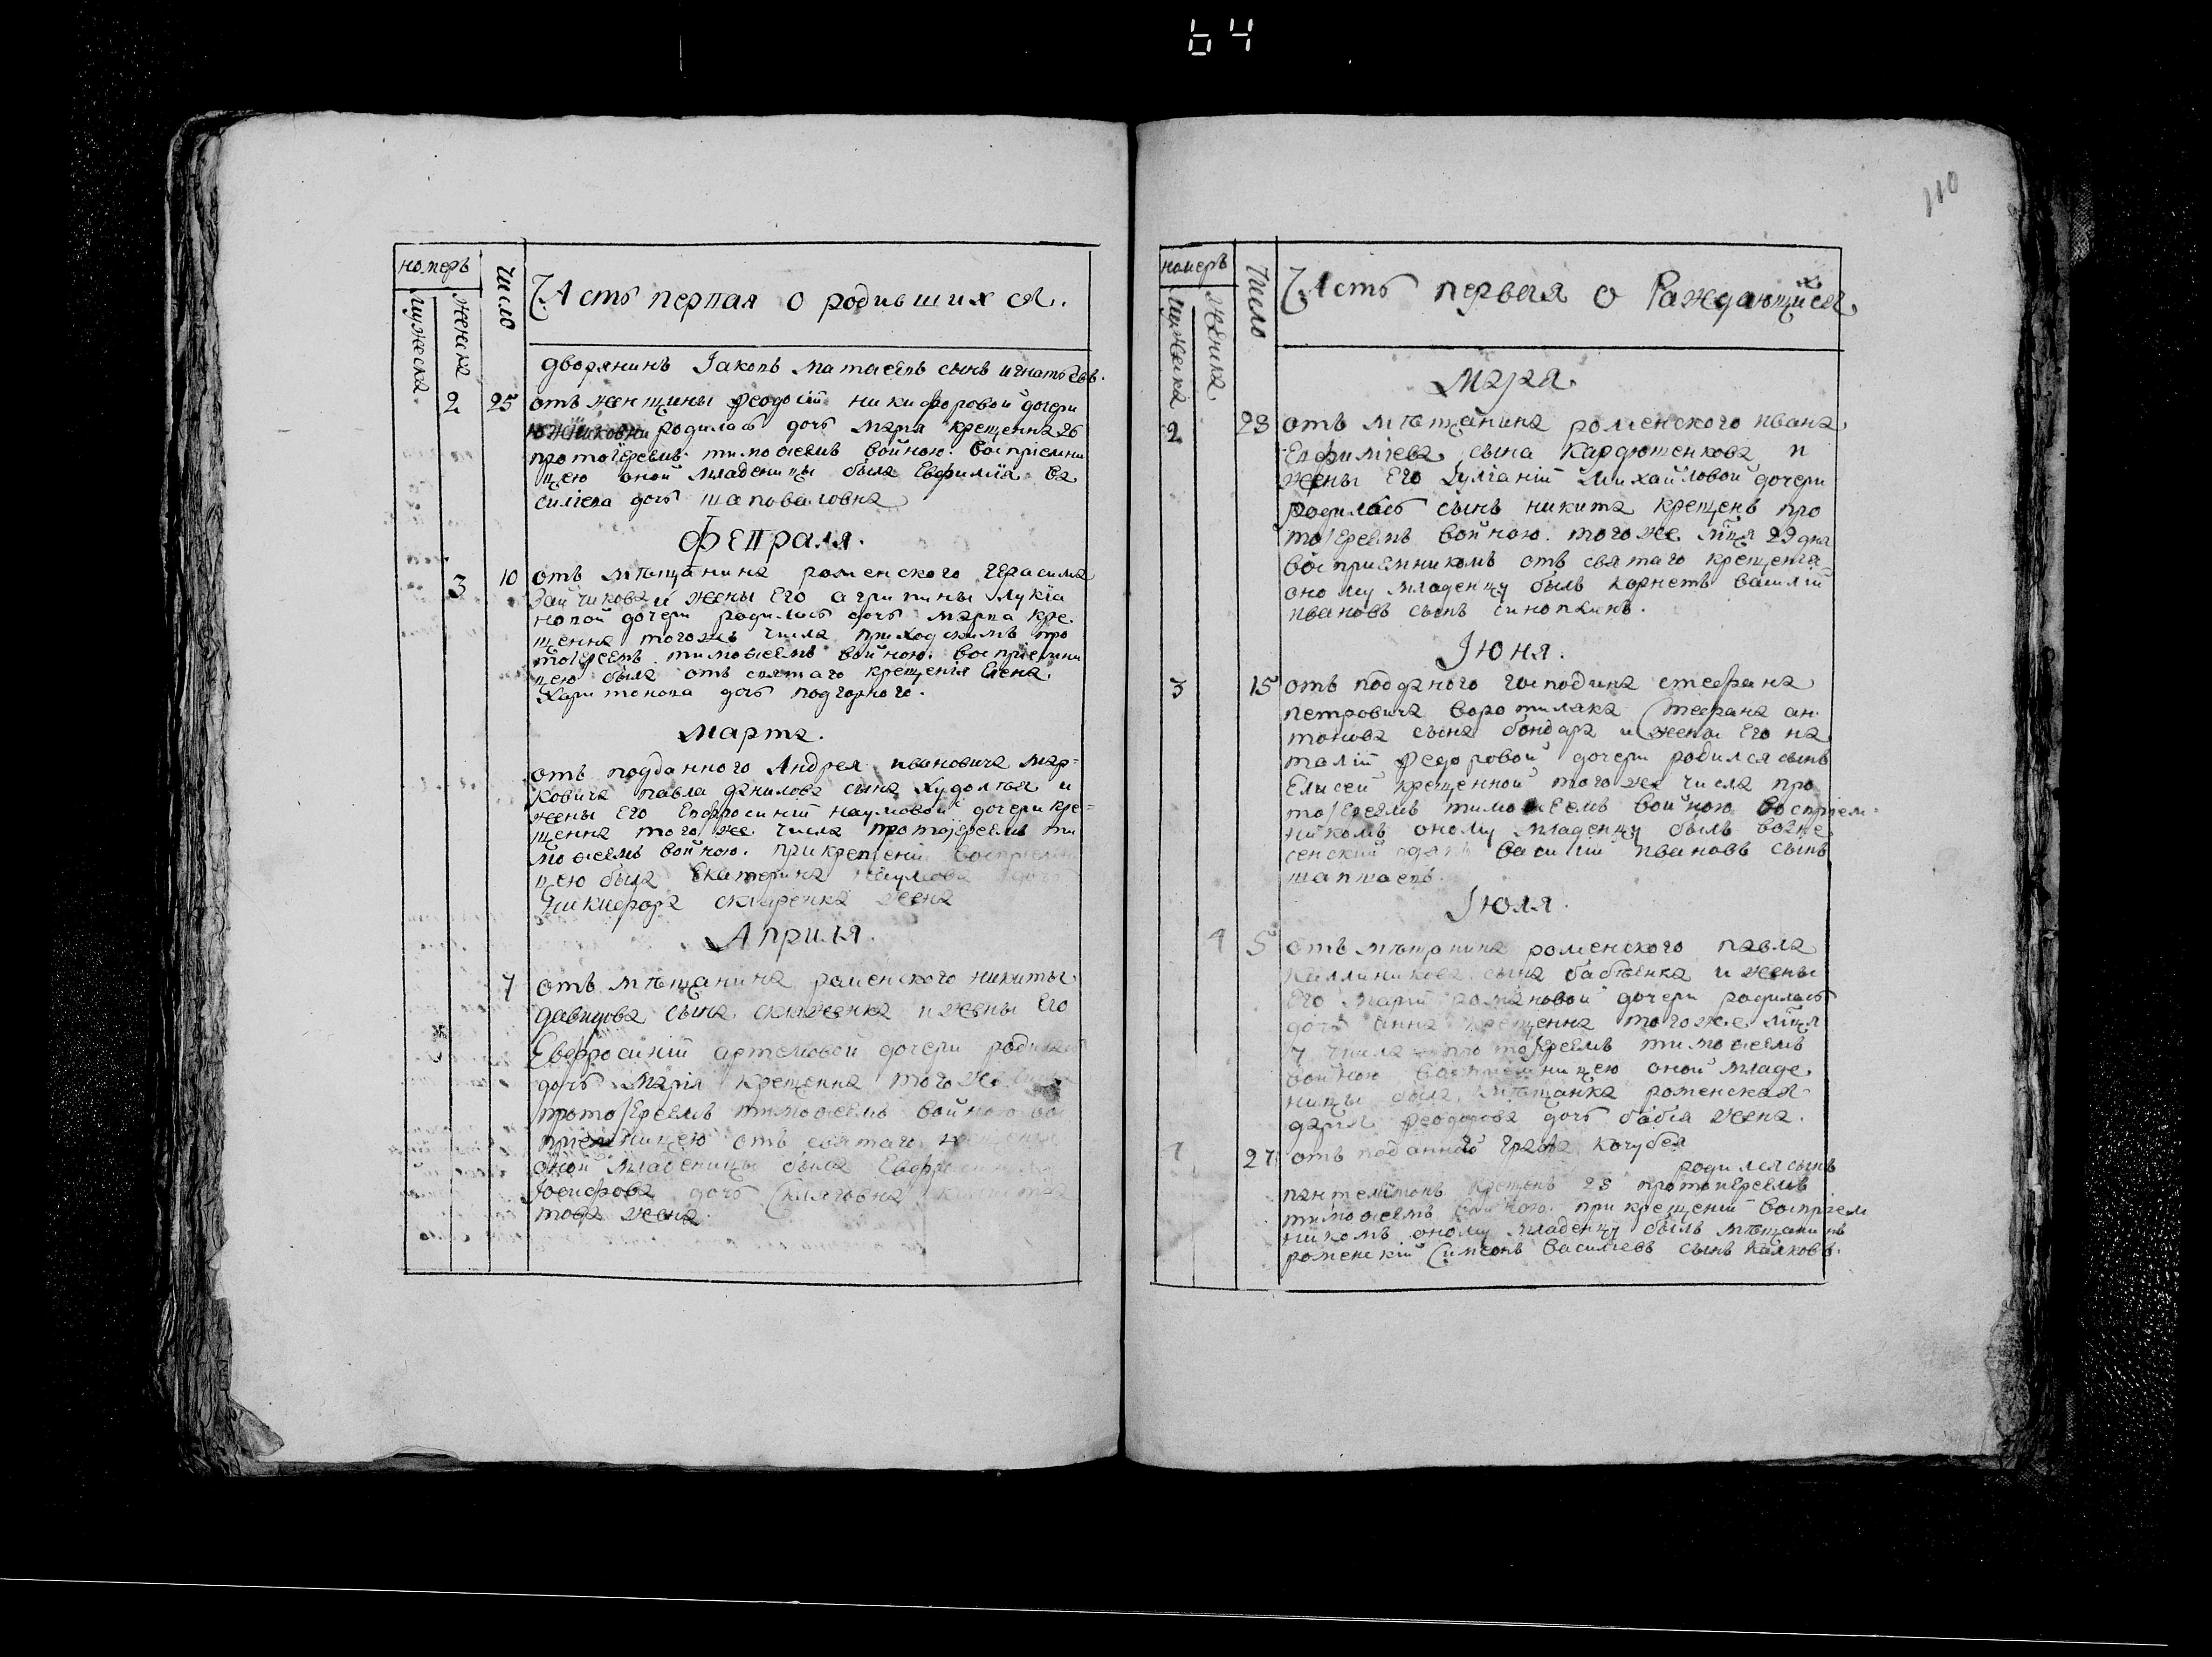 64
номеръ
мужеска
женска
число
Часть первая о родившихся.
дворянинъ Іаковъ матвѣевъ сынъ игнатьевъ.
2 25 отъ женщины Феодосіи никифоровой дочери
родилась дочь марія крещенна 26
протоіереемъ тимоѳеемъ войною. воспріемни
цею оной младеницы была Евфимія ва
силіева дочь шаповаловна
Февраля.
3 10 отъ мѣщанина роменского герасима
Заичикова и жены Его агрипины лукїа
новой дочери родилась дочь марѳа кре
щенна тогожъ числа приходскимъ про
тоІереемъ тимоѳеемъ войною. воспріемни
цею была отъ святаго крещенія Елена
Харитонова дочь подгорного.
Марта.
отъ подданного Андрея ивановича мар=
ковича павла данилова сына худолѣя и
жены Его Евфросиніи наумовой дочери кре=
щенна того же числа протоіереемъ ти
моѳеемъ войною. при крещеніи воспріемни
цею была Екатерина наумова дочь
Никифора скляренка жена
Априля.
7 отъ мѣщанина роменского никиты
давидова сына и жены Его
Евфросиніи артемовой дочери родилась
дочь Марія крещенна того же
протоІереемъ тимоѳеемъ войною во
пріемницею отъ святаго крещенія
оной младеницы была
Іосифова дочь
това жена.
110
номеръ
мужеска
женска
Число
Часть первая о Раждающихся
мая.
2 23 отъ мѣщанина роменского ивана
Евфиміева сына Кардюменкова и
жены Его Іулїаніи Михайловой дочери
родилъсь сынъ никита крещенъ про
тоІереемъ войною. того же мца 29 дня
воспріемникомъ отъ святаго крещенія
оному младенцу былъ корнетъ василій
ивановъ сынъ синопкинъ.
Іюня.
3 15 отъ подданого господина стефана
петровича воротиляка Стефана ан
тонова сына бондаря и жены Его на
таліи Федоровой дочери родился сынъ
Елисей крещенной того же числа про
тоІереемъ тимоѳеемъ войною воспріем=
никомъ оному младенцу былъ возне
сенский дякъ василій ивановъ сынъ
Іюля.
1 5 отъ мѣщанина роменского павла
каллиникова сына бабѣенка и жены
Его маріи романовой дочери родилась
дочь анна крещенна того же мца
7 числа протоІереемъ тимоѳеемъ
войною воспріемницею оной младе
ницы была мѣщанка роменская
дарія Феодорова дочь бабія жена.
1 27 отъ поданного графа кочубея
родился сынъ
пантелеймонъ крещенъ 28 протоиереемъ
тимоѳеемъ войною. при крещеніи воспріем
никомъ оному младенцу былъ мѣщанинъ
роменскій Симеонъ василіевъ сынъ